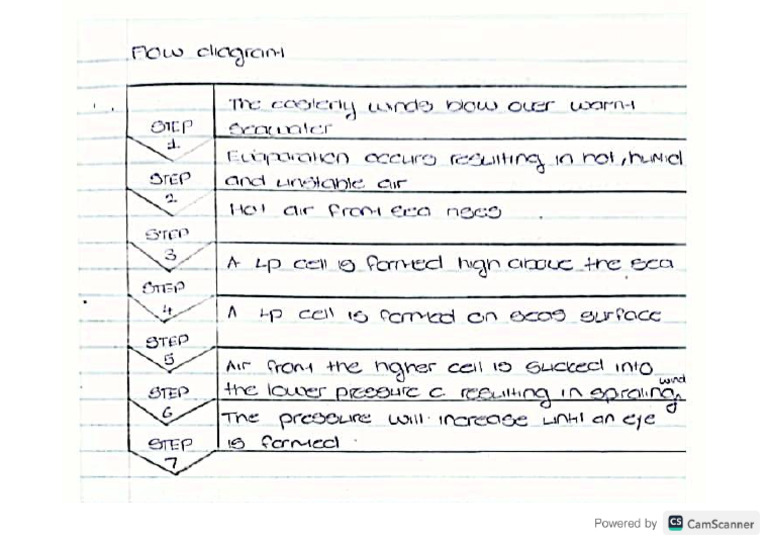 Flow diagram
STEP 1.
The easterly winds blow over warm
seawater
STEP 2
Evaporation occurs resulting in hot, humid
and unstable air
STEP 3
Hot air from sea rises
STEP 4
A LP cell is formed high above the sea
STEP 5
A LP cell is formed on seas surface
STEP 6
Air from the higher cell is sucked into
the lower pressure c resulting in spiraling wind
STEP 7
The pressure will increase until an eye
is formed.
Powered by CS CamScanner